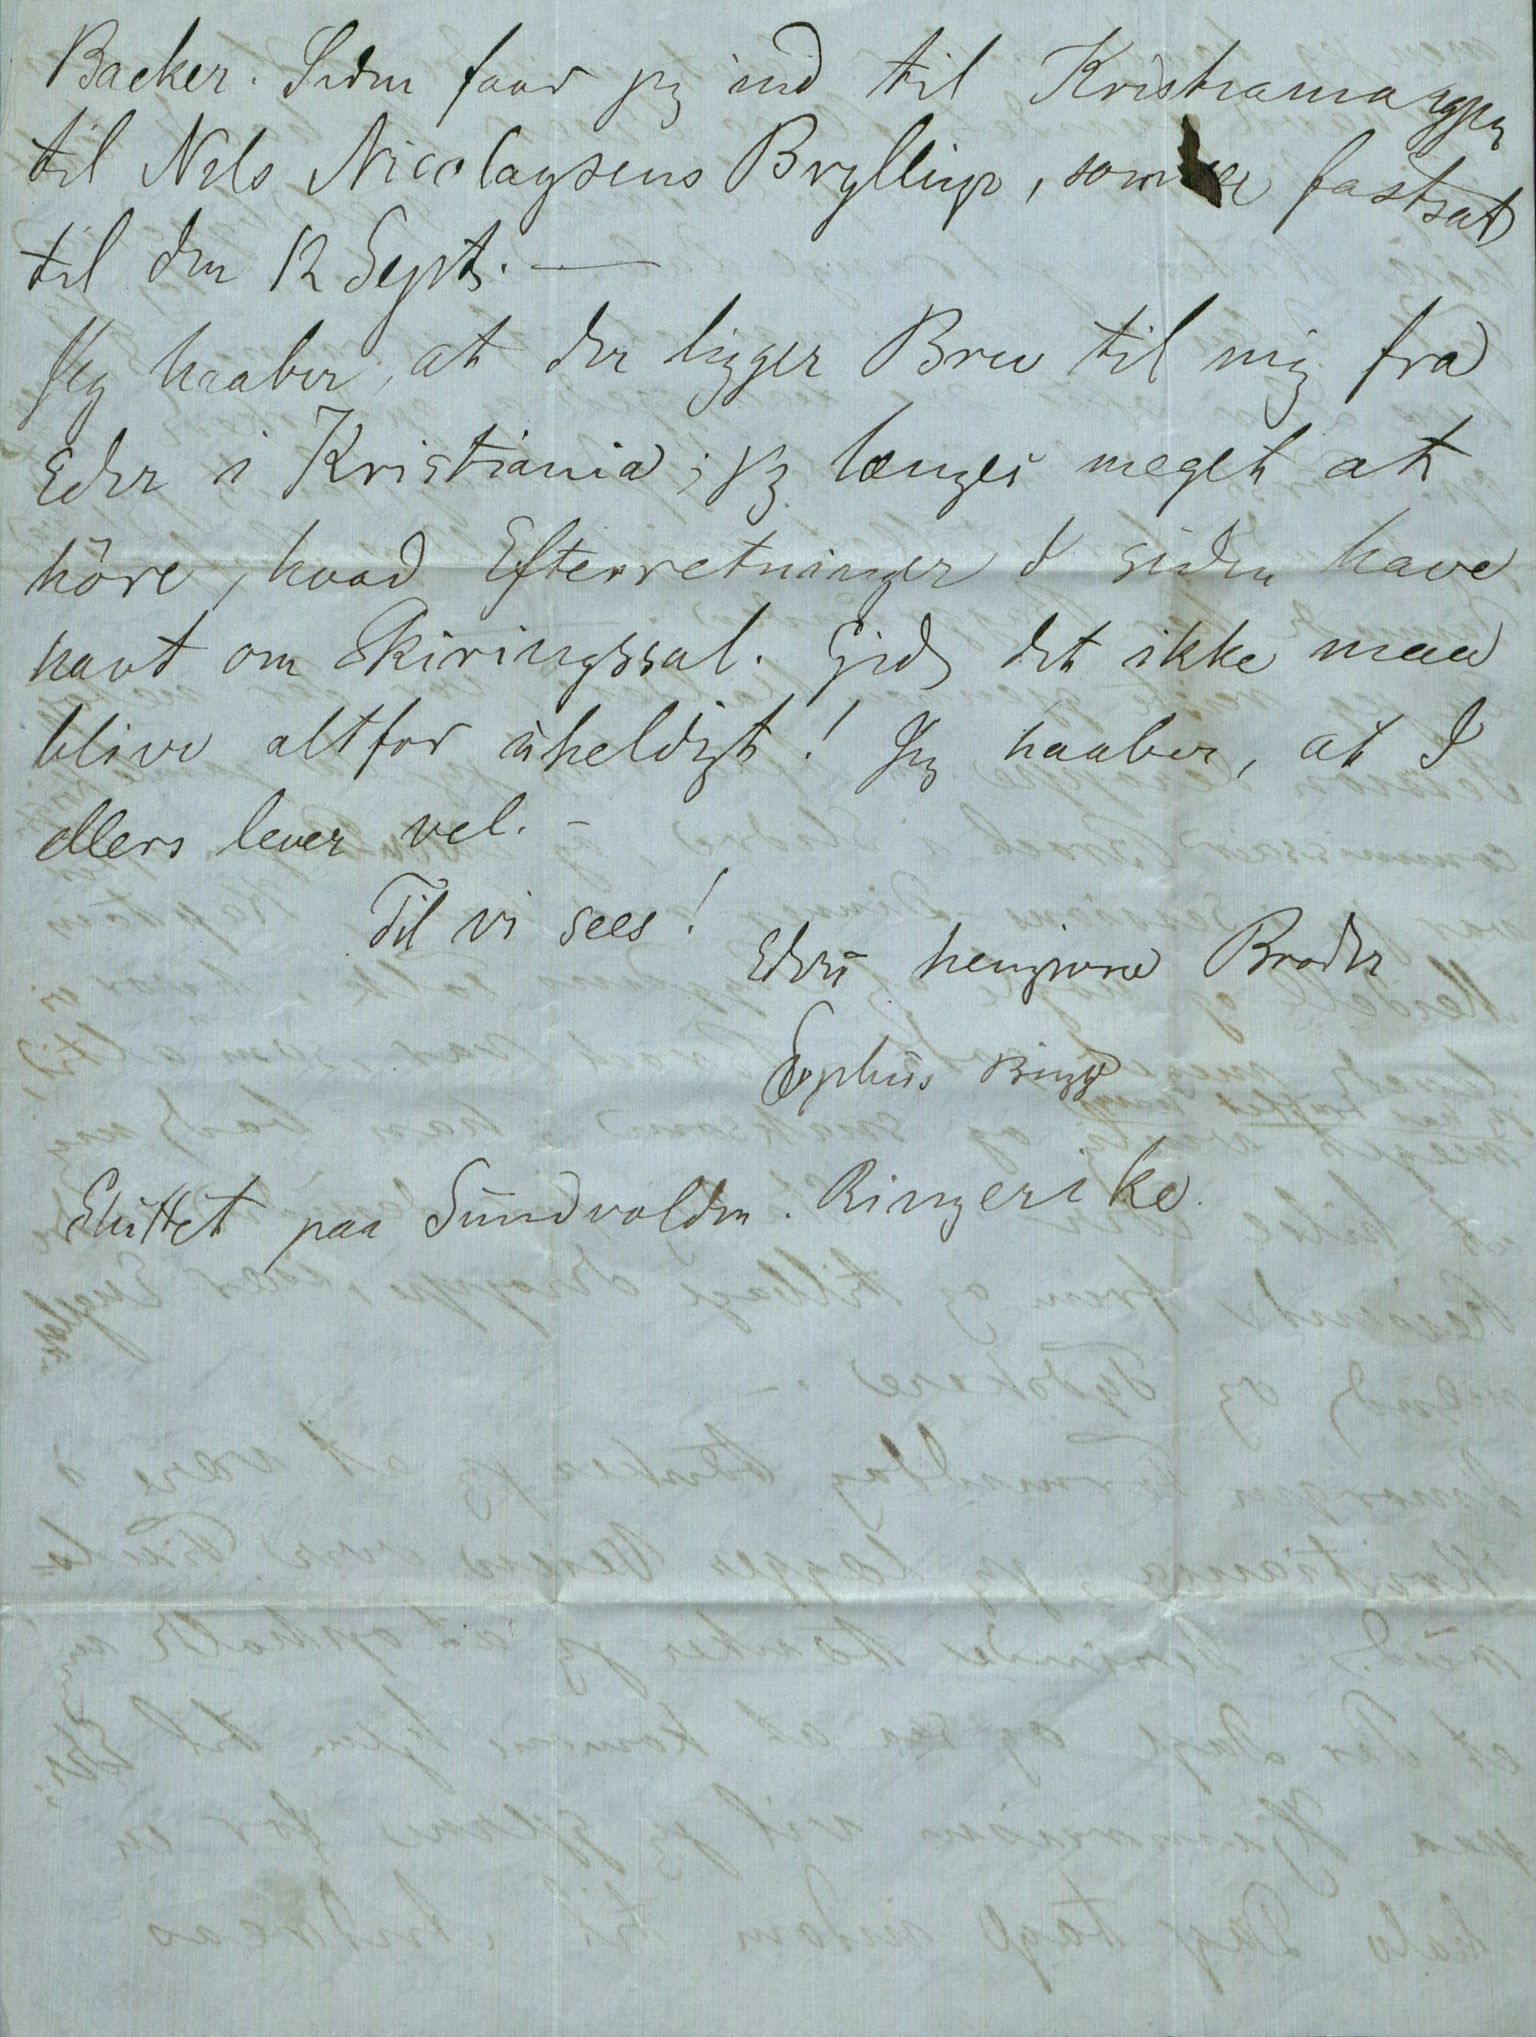 Backer. Siden faar jeg ind til Kristiania igjen
til Nels Nicolaysens Bryllup, som er fastsat
til den 12 Sept. —
Jeg haaber, at der ligger Brev til mig fra
Eder i Kristiania; jeg længes meget at
höre, hvad Efterretninger I siden have
havt om Skiringssal. Gid det ikke maa
blive altfor uheldigt! Jeg haaber, at I
ellers lever vel. –
Til vi sees!
Eders hengivne Broder
Sophus Bugge
Sluttet paa Sundvolden. Ringerike.